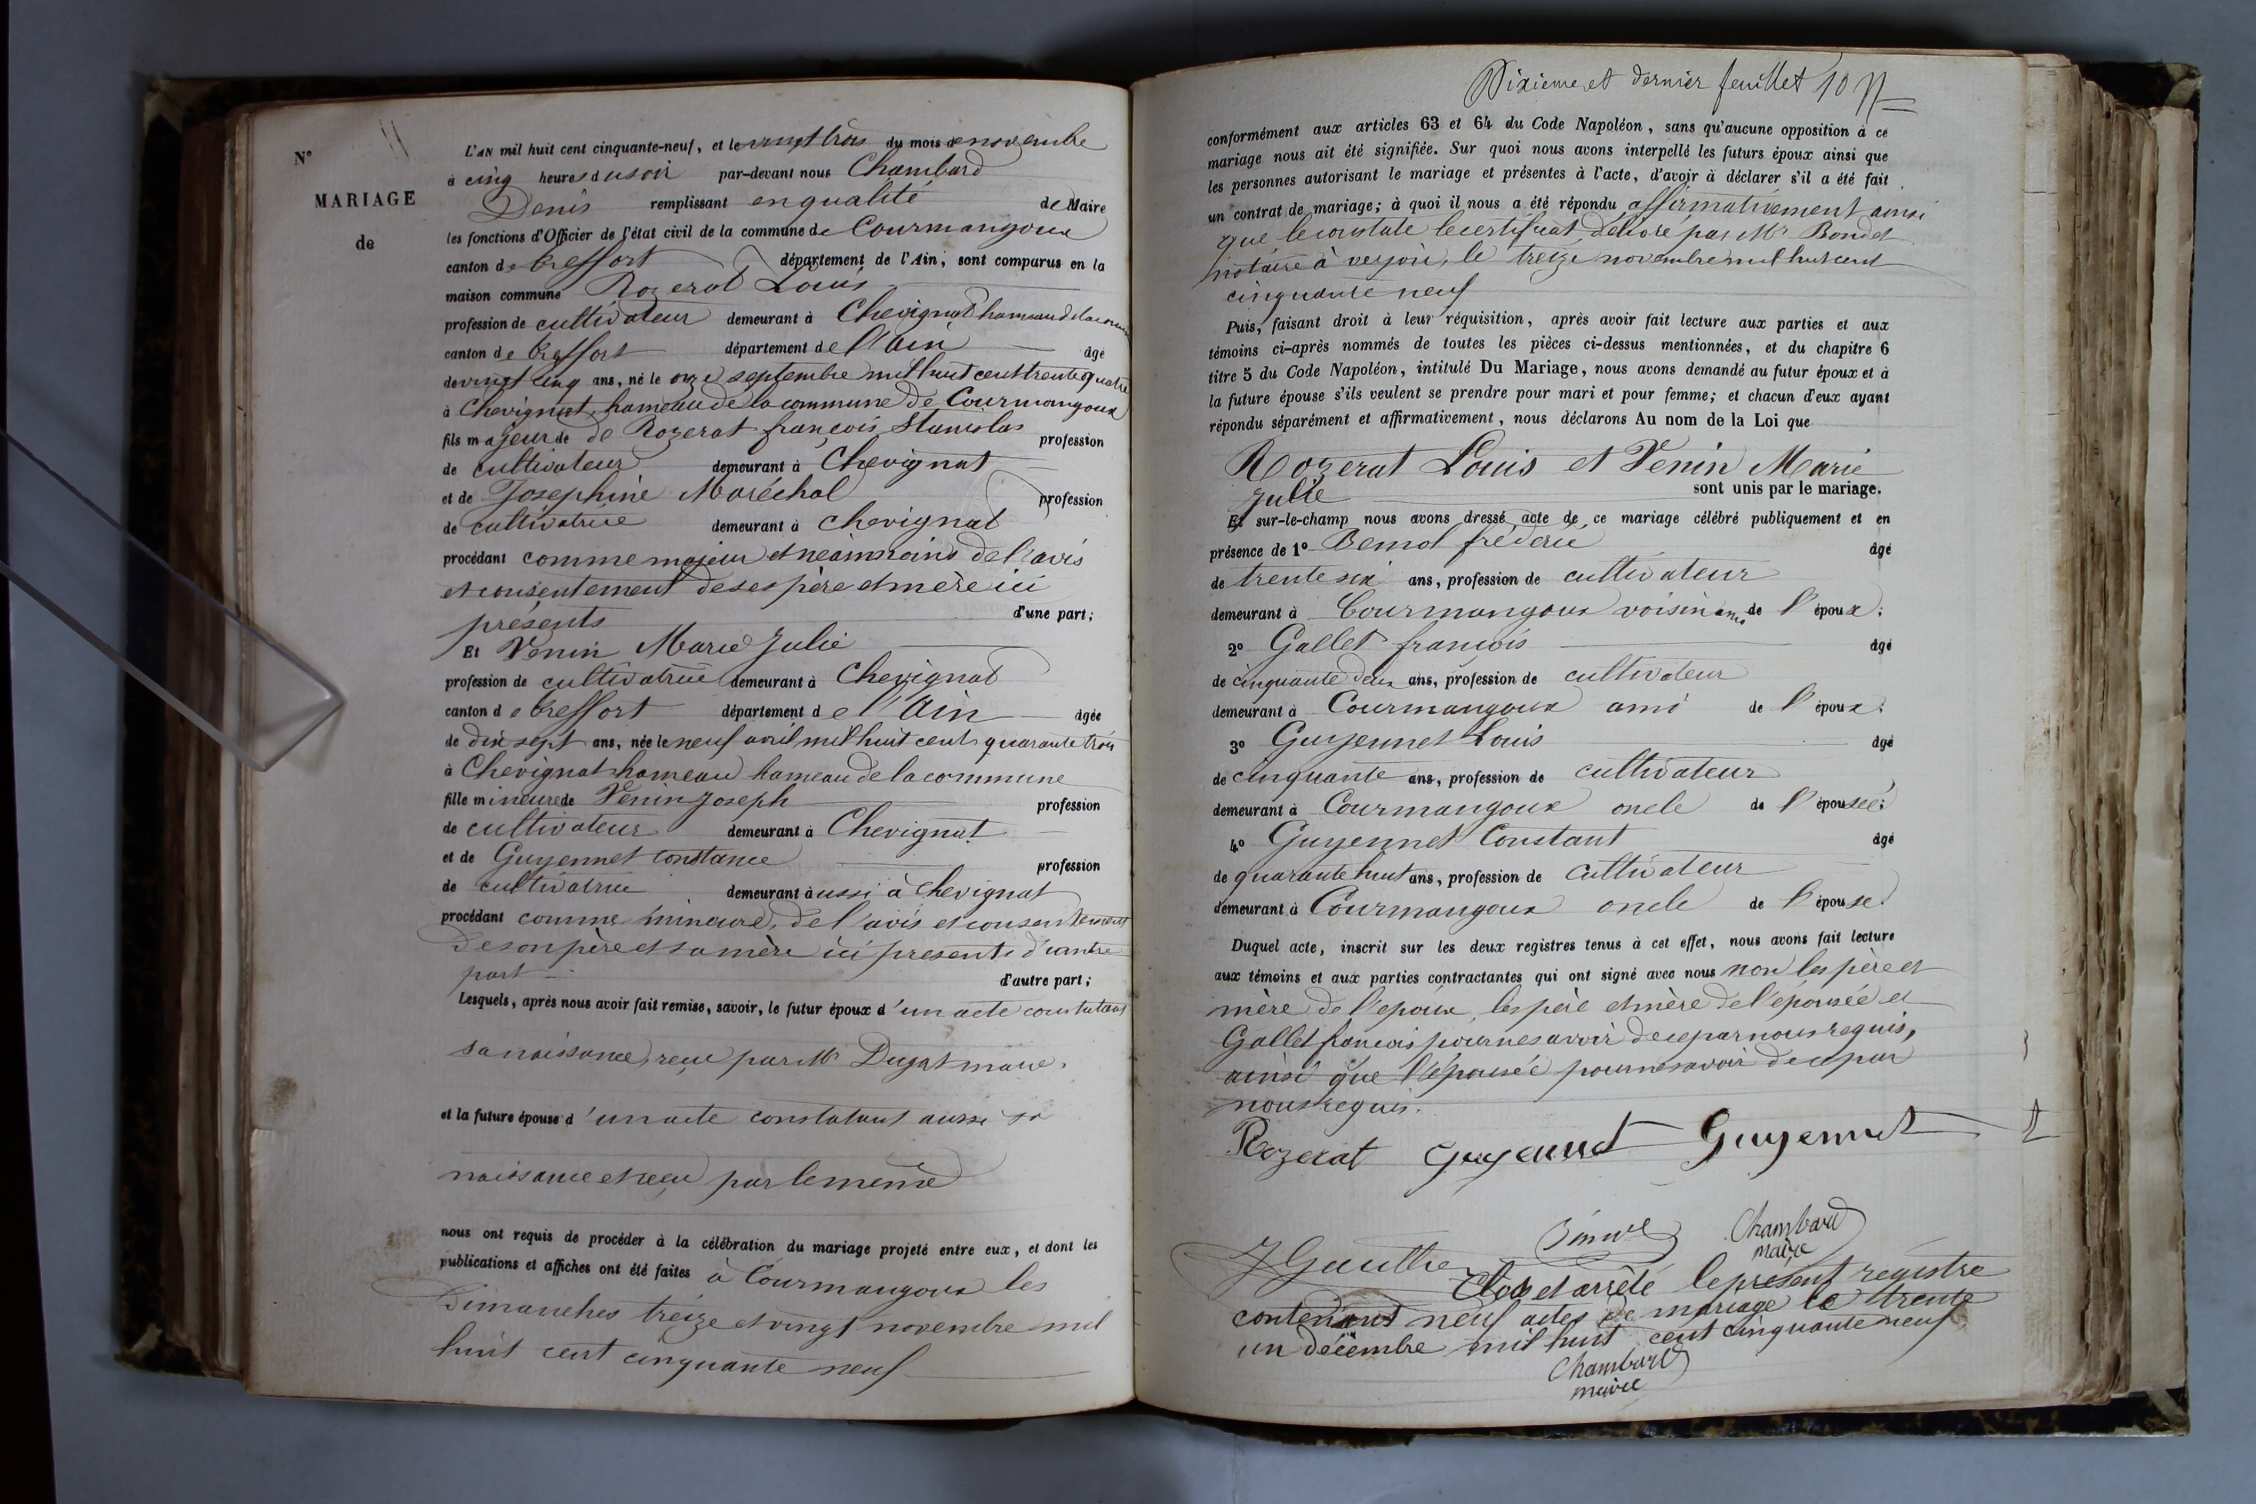 N°
MARIAGE
de
L'AN mil huit cent cinquante-neuf, et le vingt trois du mois de novembre
à cinq heures du soir par-devant nous Chambard
Denis remplissant en qualité de Maire
les fonctions d'Officier de l'état civil de la commune de Courmangoux
canton de Treffort département de l'Ain; sont comparus en la
maison commune Rozerat Louis
profession de cultivateur demeurant à Chevignat hameau de la commune
canton de Treffort département de l'Ain âgé
de vingt cinq ans, né le onze septembre mil huit cent trente quatre
à Chevignat, hameau de la commune de Courmangoux
fils majeur de de Rozerat françois Stanislas profession
de cultivateur demeurant à Chevignat
et de Josephine Maréchal profession
de cultivatrice demeurant à chevignat
procédant comme majeur et néamoins de l'avis
et consentement de ses père et mère ici
présents d'une part;
Et Venin Marie Julie
profession de cultivatrice demeurant à Chevignat
canton de Treffort département de l'Ain âgée
de dix sept ans, née le neuf avril mil huit cent quarante trois
à Chevignat hameau hameau de la commune
fille mineure de Venin Joseph profession
de cultivateur demeurant à Chevignat
et de Guyennet Constance profession
de cultivatrice demeurant aussi à Chevignat
procédant comme mineure, de l'avis et consentement
de son père et sa mère ici presents d'autre
part d'autre part;
Lesquels, après nous avoir fait remise, savoir, le futur époux d'un acte constatant
sa naissance, reçu par Mr Dugat maire,
et la future épouse d'un acte constatant aussi sa
naissance et reçu par le même
nous ont requis de procéder à la célébration du mariage projeté entre eux, et dont les
publications et affiches ont été faites à Courmangoux les
Dimanches treize et vingt novembre mil
huit cent cinquante neuf
Dixieme et dernier feuillet 10
conformément aux articles 63 et 64 du Code Napoléon, sans qu'aucune opposition à ce
mariage nous ait été signifiée. Sur quoi nous avons interpellé les futurs époux ainsi que
les personnes autorisant le mariage et présentes à l'acte, d'avoir à déclarer s'il a été fait
un contrat de mariage; à quoi il nous a été répondu affirmativement ainsi
que le constate le certificat délivré par Mr Bondet
notaire à verjon, le treize novembre mil huit cent
cinquante neuf
Puis, faisant droit à leur réquisition, après avoir fait lecture aux parties et aux
témoins ci-après nommés de toutes les pièces ci-dessus mentionnées, et du chapitre 6
titre 5 du Code Napoléon, intitulé Du Mariage, nous avons demandé au futur époux et à
la future épouse s'ils veulent se prendre pour mari et pour femme; et chacun d'eux ayant
répondu séparément et affirmativement, nous déclarons Au nom de la Loi que
Rozerat Louis et Venin Marie
Julie sont unis par le mariage.
Et sur-le-champ nous avons dressé acte de ce mariage célébré publiquement et en
présence de 1° Benod fréderic âgé
de trente six ans, profession de cultivateur
demeurant à Courmangoux voisin ami de l'époux;
2° Gallet francois âgé
de cinquante deux ans, profession de cultivateur
demeurant à Courmangoux ami de l'époux;
3° Guyennet Louis âgé
de cinquante ans, profession de cultivateur
demeurant à Courmangoux oncle de l'épousée;
4° Guyennet Constant âgé
de quarante huit ans, profession de cultivateur
demeurant à Courmangoux oncle de l'épouse.
Duquel acte, inscrit sur les deux registres tenus à cet effet, nous avons fait lecture
aux témoins et aux parties contractantes qui ont signé avec nous non les père et
mère de l'epoux, les père et mère de l'épousée et
Gallet francois pour ne savoir de ce par nous requis,
ainsi que l'épousée pour ne savoir de ce par
nous requis.
Rozerat Guyennet Guyennet
Chambard
maire
J Gauthier
Clos et arrêté le présent registre
contenant neuf actes de mariage le trente
un décembre mil huit cent cinquante neuf
Chambard
maire